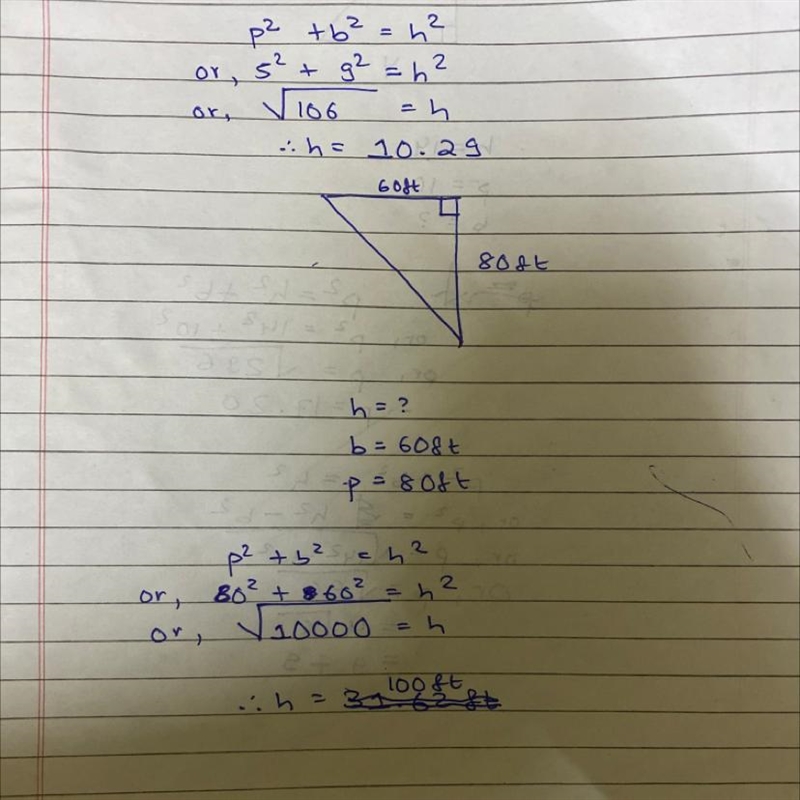 p² + b² = h²
or, 5² + 9² = h²
or, √106 = h
∴ h = 10.29
60ft
80ft
h = ?
b = 60ft
p = 80ft
p² + b² = h²
or, 80² + 60² = h²
or, √10000 = h
100ft
∴ h = 31.62 ft